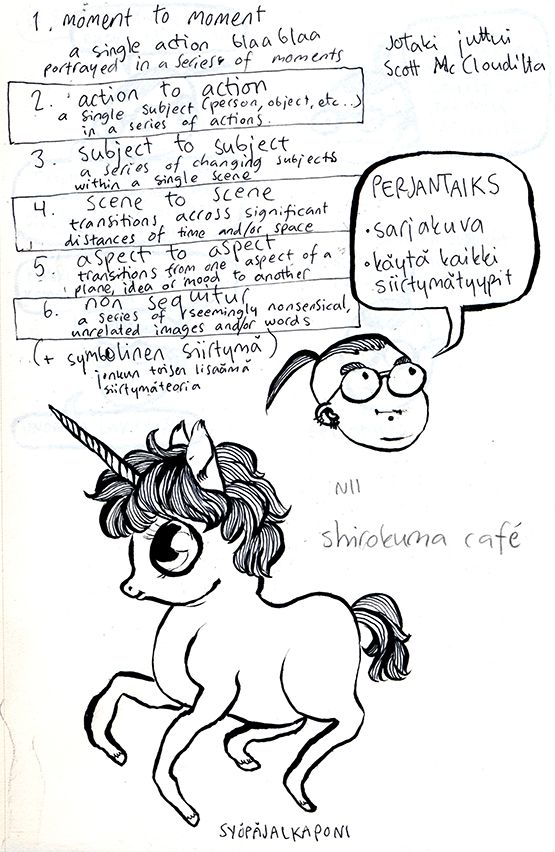 1. moment to moment
a single action blaa blaa
portrayed in a series of moments
2. action to action
a single subject (person, object, etc...)
in a series of actions.
3. subject to subject
a series of changing subjects
within a single scene
4. scene to scene
transitions across significant
distances of time and/or space
5. aspect to aspect
transitions from one aspect of a
plane, idea or mood to another
6. non sequitur
a series of seemingly nonsensical,
unrelated images and/or words
(+ symbolinen siirtymä)
jonkun toisen lisäämä
siirtymäteoria
Jotaki juttui
Scott McCloudilta
PERJANTAIKS
• sarjakuva
• käytä kaikki
siirtymätyypit
NII
shirokuma café
SYÖPÄJALKAPONI